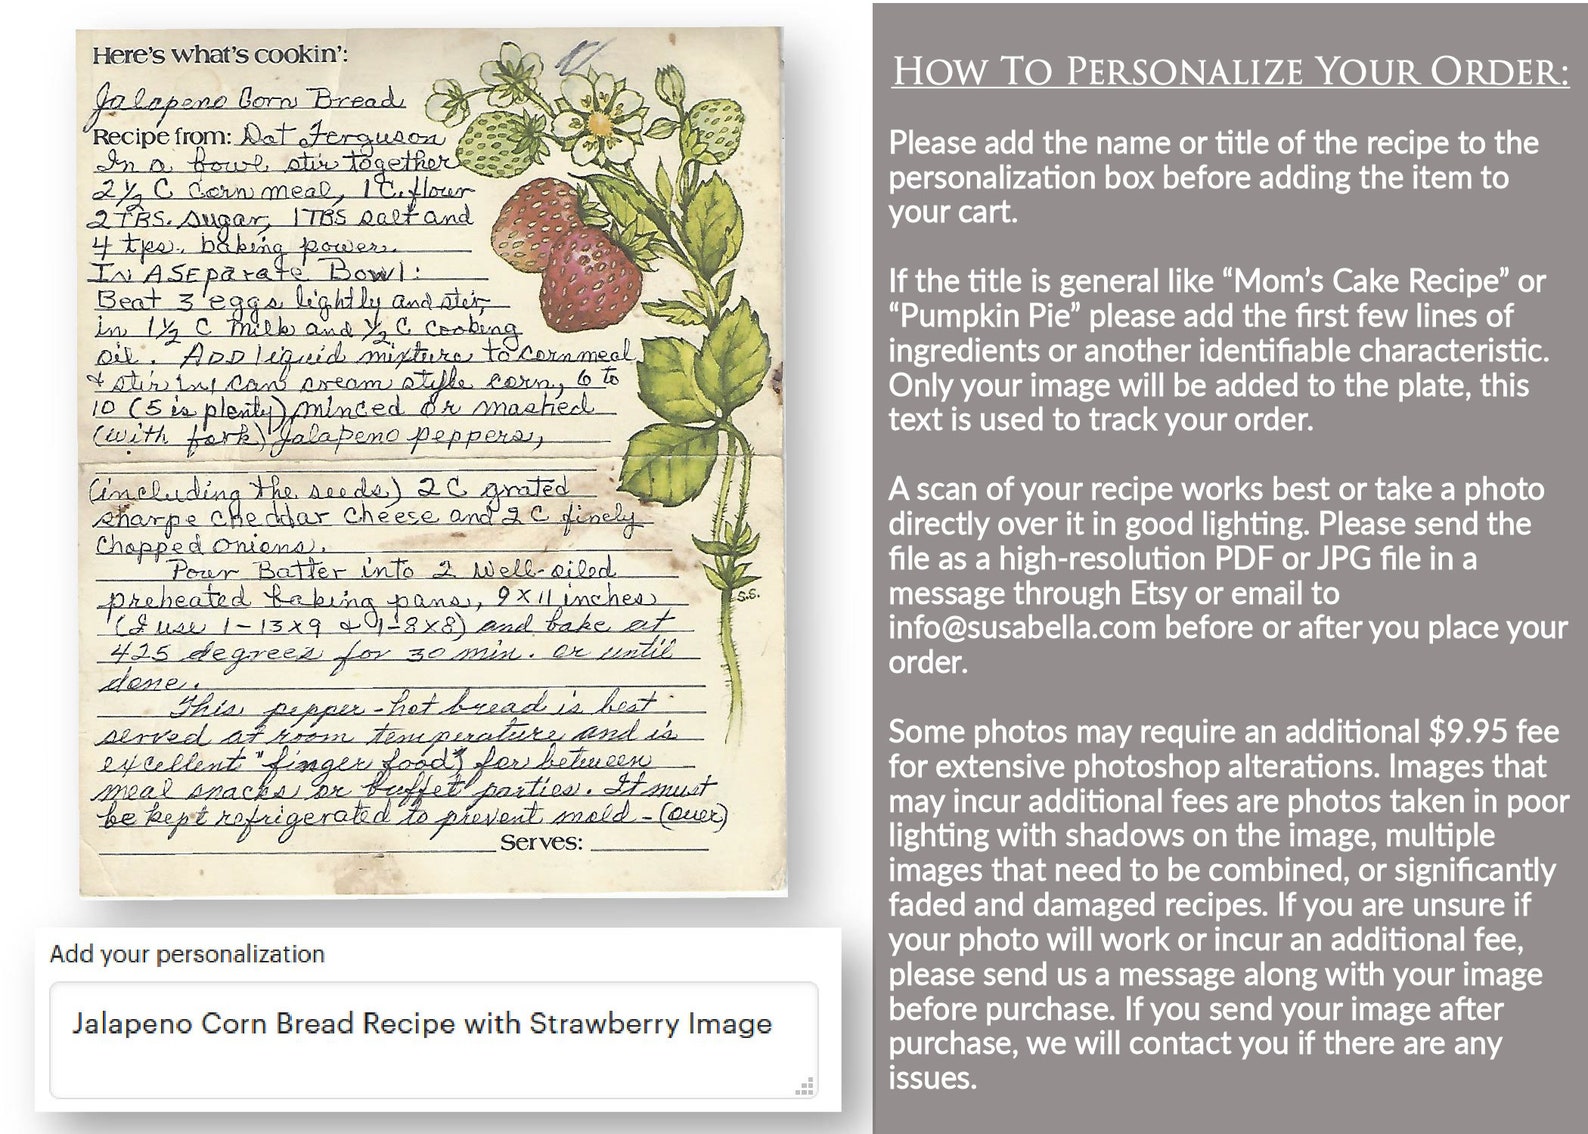 Here's what's cookin':
Jalapeno Corn Bread
Recipe from: Dot Ferguson
In a bowl stir together
2½ C corn meal, 1 C. flour
2 TBS. sugar, 1 TBS salt and
4 tps. baking power.
In A SEparate Bowl:
Beat 3 eggs lightly and stir
in 1½ C milk and ½ C cooking
oil. ADD liquid mixture to cornmeal
& stir in 1 can cream style corn, 6 to
10 (5 is plenty) minced or mashed
(with fork) Jalapeno peppers,
(including the seeds) 2 C grated
sharpe cheddar cheese and 2 C finely
chopped onions.
Pour Batter into 2 well-oiled
preheated baking pans, 9x11 inches
(I use 1-13x9 & 1-8x8) and bake at
425 degrees for 30 min. or until
done.
This pepper-hot bread is best
served at room temperature and is
excellent "finger food" for between
meal snacks or buffet parties. It must
be kept refrigerated to prevent mold - (over)
Serves:
S.S.
Add your personalization
Jalapeno Corn Bread Recipe with Strawberry Image
How To Personalize Your Order:
Please add the name or title of the recipe to the
personalization box before adding the item to
your cart.
If the title is general like “Mom’s Cake Recipe” or
“Pumpkin Pie” please add the first few lines of
ingredients or another identifiable characteristic.
Only your image will be added to the plate, this
text is used to track your order.
A scan of your recipe works best or take a photo
directly over it in good lighting. Please send the
file as a high-resolution PDF or JPG file in a
message through Etsy or email to
info@susabella.com before or after you place your
order.
Some photos may require an additional $9.95 fee
for extensive photoshop alterations. Images that
may incur additional fees are photos taken in poor
lighting with shadows on the image, multiple
images that need to be combined, or significantly
faded and damaged recipes. If you are unsure if
your photo will work or incur an additional fee,
please send us a message along with your image
before purchase. If you send your image after
purchase, we will contact you if there are any
issues.